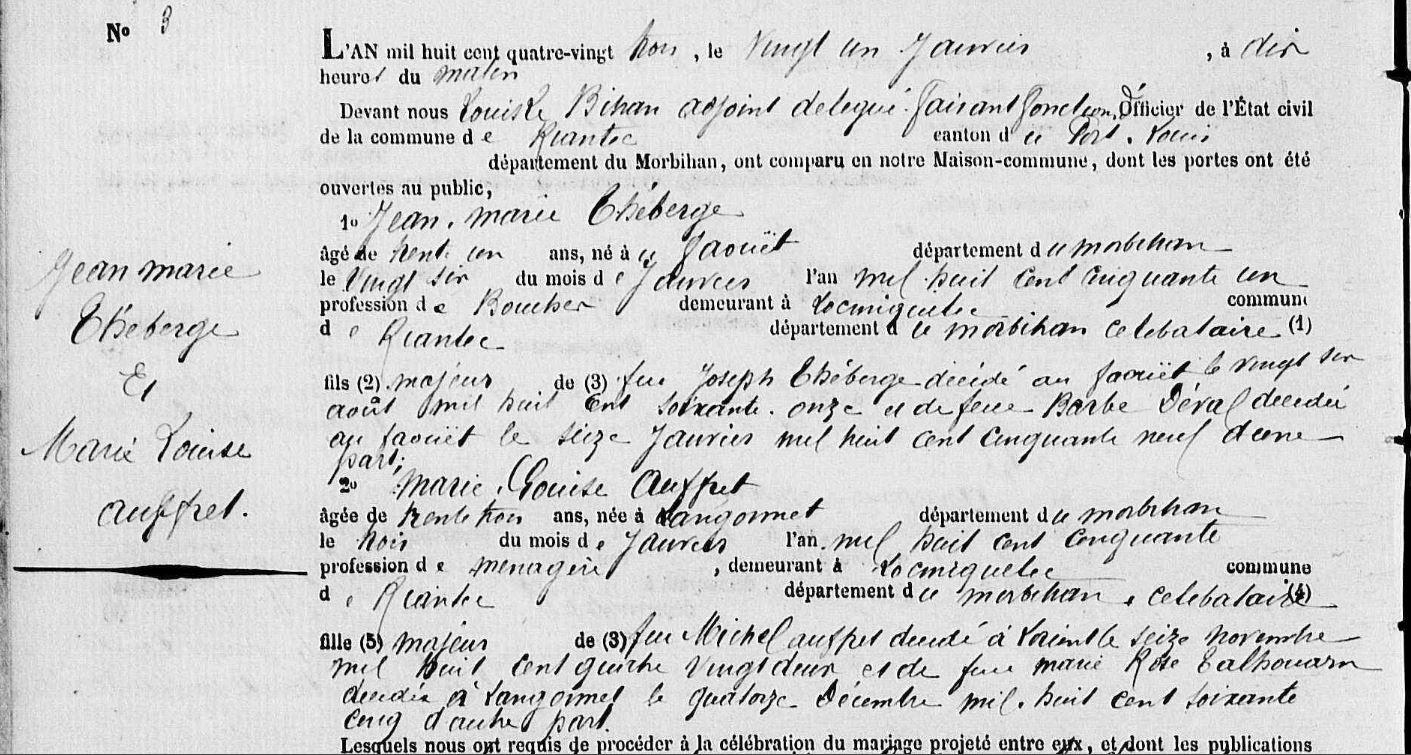 No 3
L'AN mil huit cent quatre-vingt trois, le Vingt un Janvier, à dix
heures du matin
Devant nous Louis Le Bihan adjoint délégué faisant fonction, Officier de l'État civil
de la commune de Riantec canton du Port-Louis
département du Morbihan, ont comparu en notre Maison-commune, dont les portes ont été
ouvertes au public;
1o Jean-marie Théberge
âgé de trent un ans, né à faouët département du morbihan
le Vingt six du mois de Janvier l'an mil huit cent cinquante un
profession de Boucher demeurant à Locmiquelic commune
de Riantec département du morbihan celebataire (1)
fils (2) majeur de (3) feu Joseph Théberge décédé au faouët le vingt six
août mil huit Cent soixante-onze et de feue Barbe Déval décédée
au faouët le seize Janvier mil huit cent cinquante neuf d'une
part;
2o Marie-Louise Auffret
âgée de trente trois ans, née à Langonnet département du morbihan
le trois du mois de Janvier l'an mil huit cent cinquante
profession de menagère, demeurant à Locmiquelic commune
de Riantec département du morbihan, celebataire (4)
fille (5) majeur de (3) feu Michel auffret décédé à Lorient le seize novembre
mil huit cent quatre Vingt deux et de feue marie Rose Talhouarn
décédée à Langonnet le quatorze Décembre mil huit cent soixante
cinq d'autre part.
Lesquels nous ont requis de procéder à la célébration du mariage projeté entre eux, et dont les publications
Jean marie
Théberge
Et
Marie Louise
auffret.